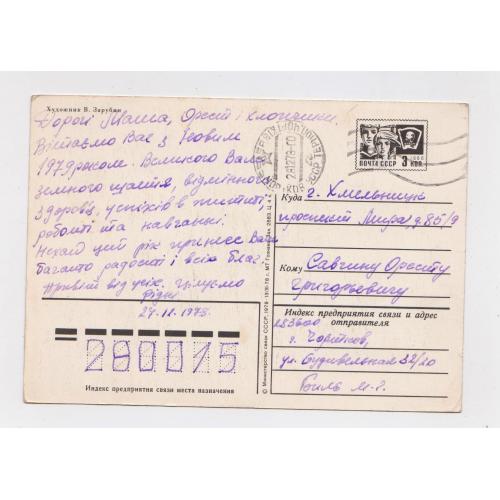 Художник В. Зарубин
Дорогі Маша, Орест і хлопчики.
Вітаємо Вас з Новим
1979 роком. Великого Вам
земного щастя, відмінного
здоров'я, успіхів в житті,
роботі та навчанні.
Нехай цей рік принесе Вам
багато радості і всіх благ.
Привіт від усіх. Цілуємо
Рідні
27.12.1978.
280015
Индекс предприятия связи места назначения
© Министерство связи СССР, 1978
ПОЧТА СССР
3 КОП
1966
Куда г. Хмельницк
проспект Мира д 85/9
Кому Савчину Оресту
Григорьевичу
Индекс предприятия связи и адрес
отправителя
283600
г. Чортков,
ул Будивельная 32/20
М. Г.